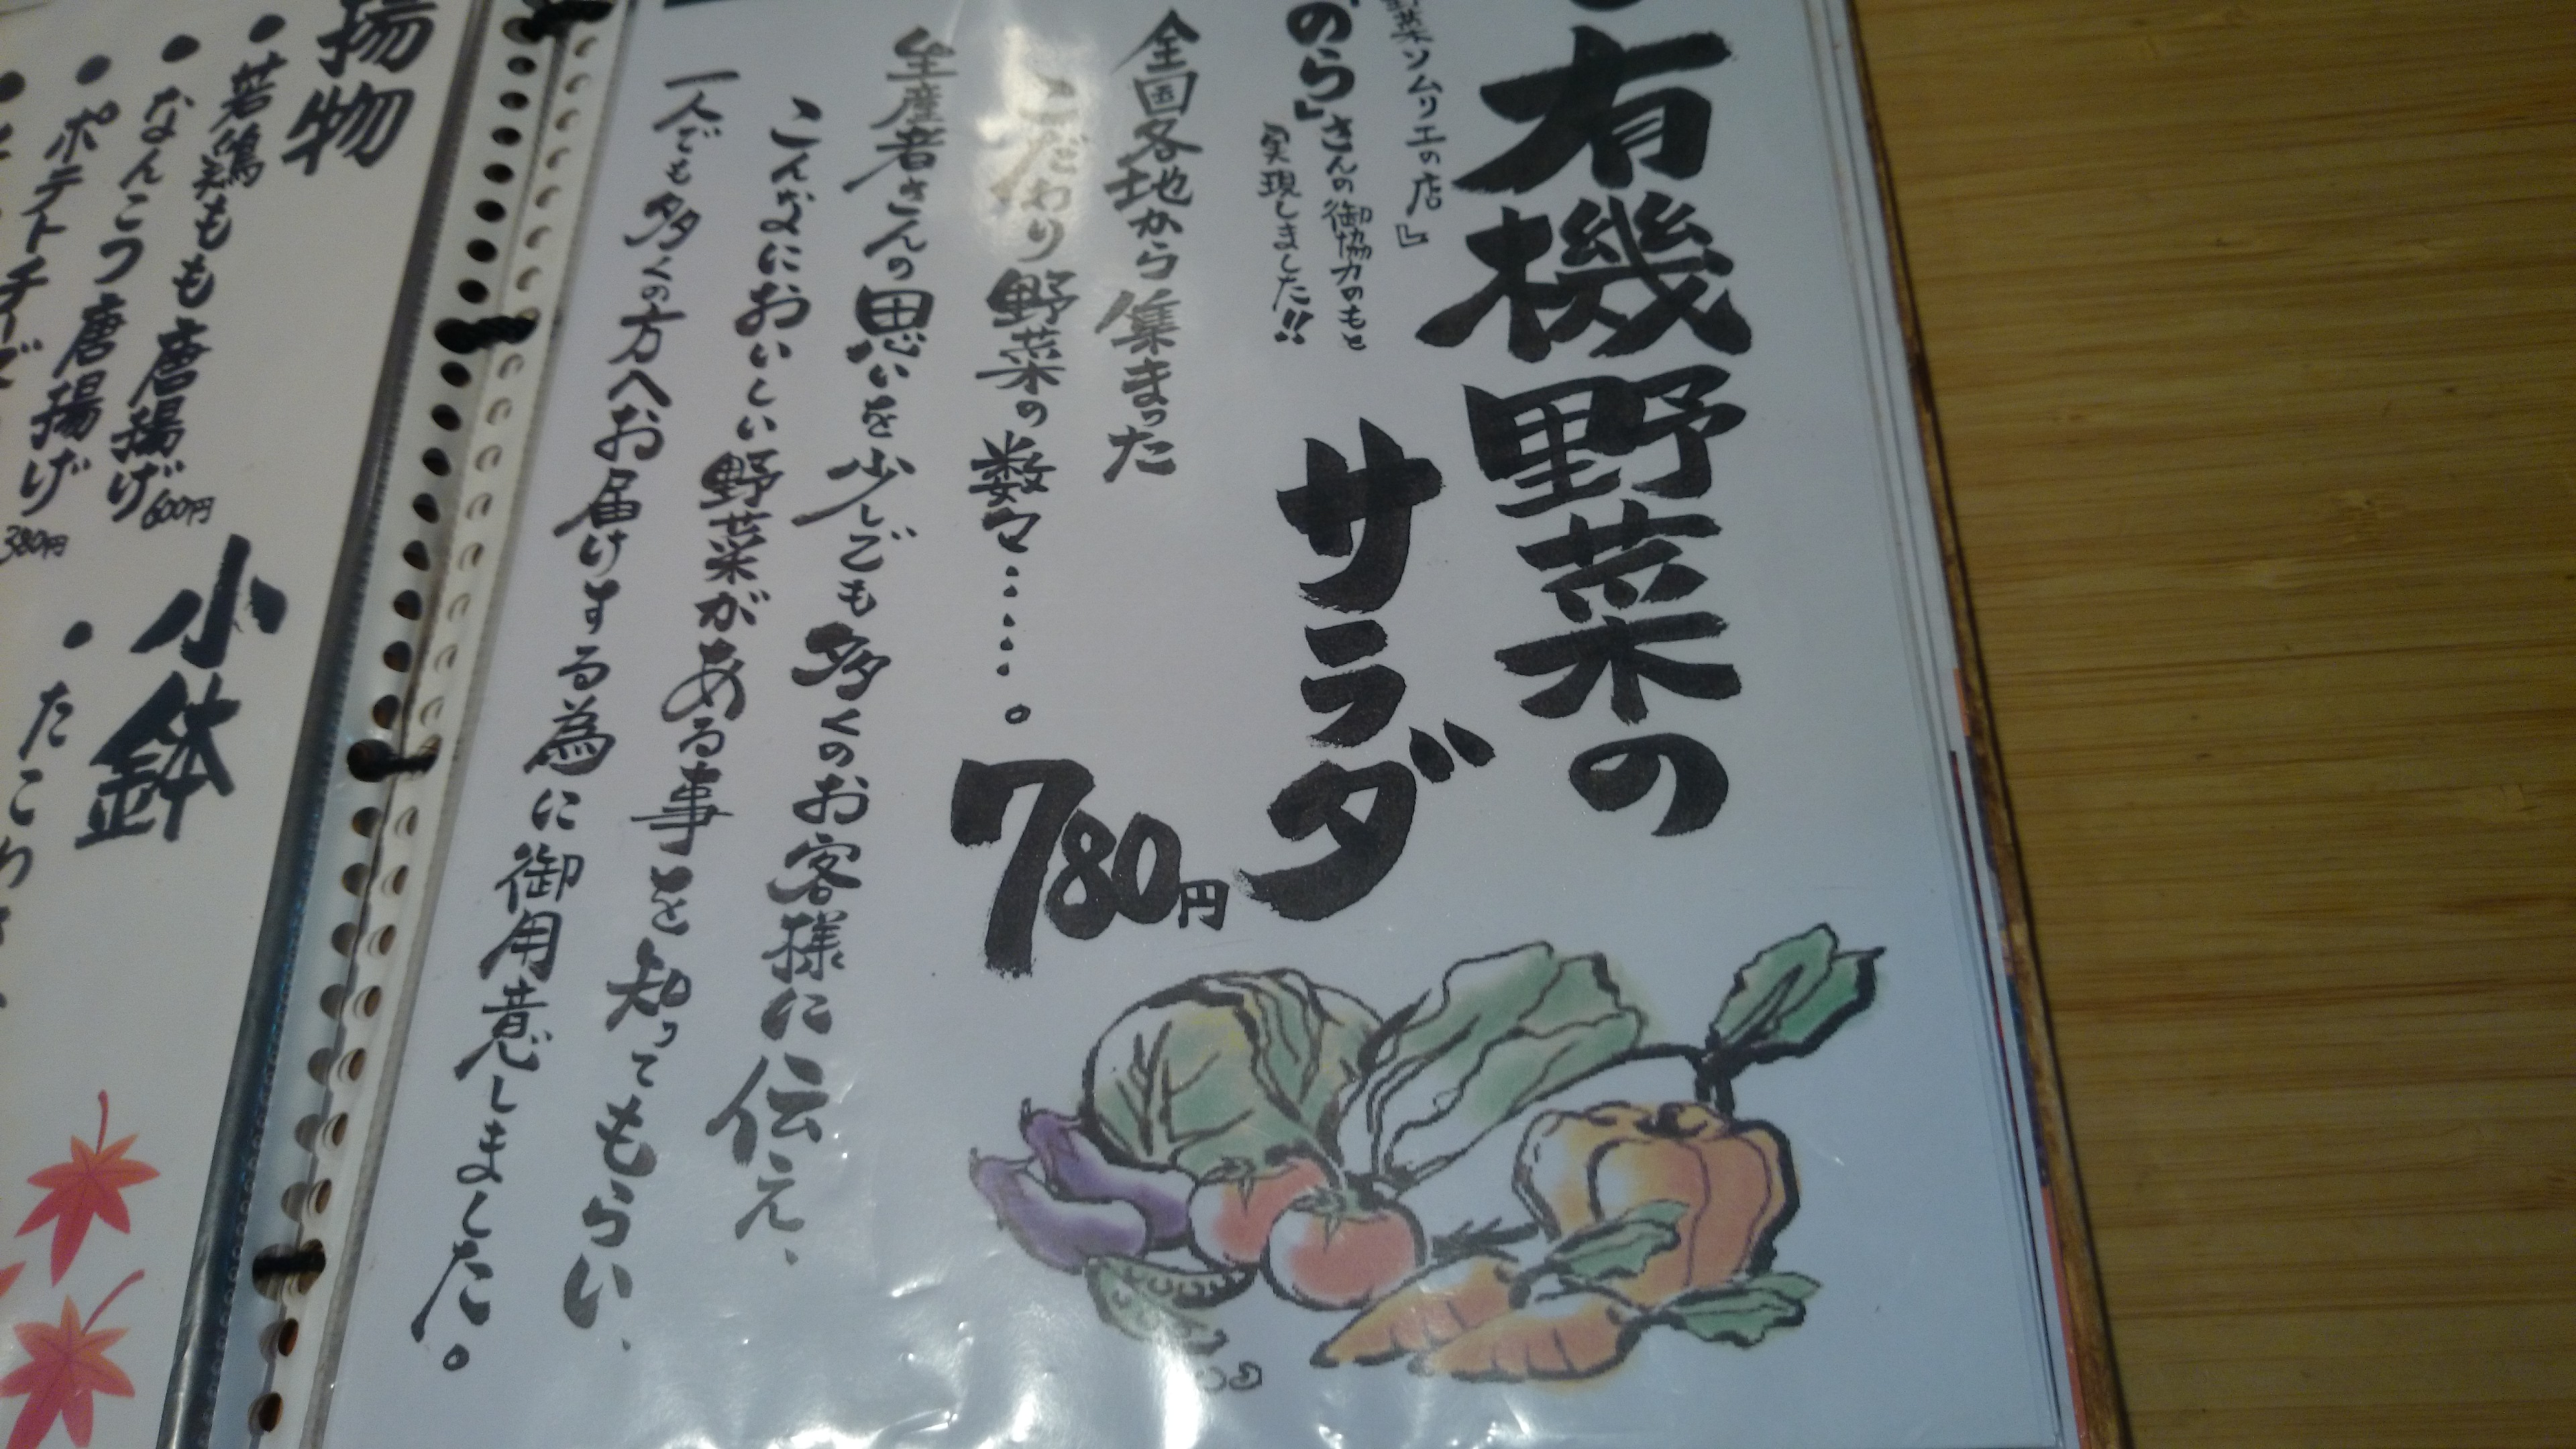 有機野菜の
サラダ
780円
野菜ソムリエの店』
のら」さんの御協力のもと
実現しました!!
全国各地から集まった
こだわり野菜の数々……。
生産者さんの思いを少しでも多くのお客様に伝え、
こんなにおいしい野菜がある事を知ってもらい、
一人でも多くの方へお届けする為に御用意しました。
揚物
●若鶏もも唐揚げ 600円
●なんこつ唐揚げ 380円
●ポテトチーズ
小鉢
●たこわさ